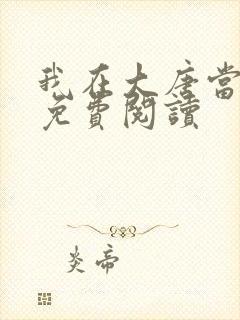 我在大唐當
免費閱讀
炎帝